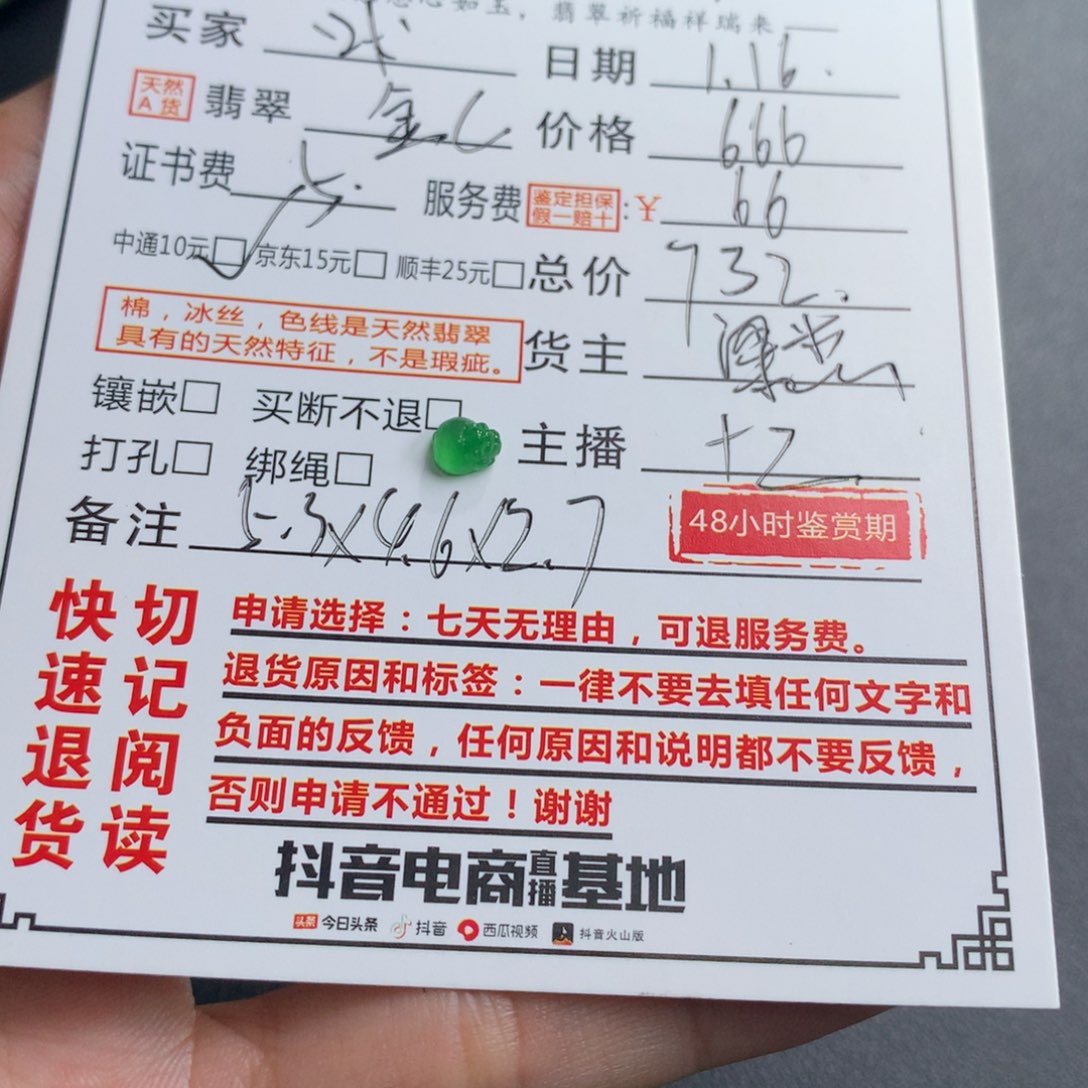 如玉，翡翠祈福祥瑞来
买家 日期 1.16.
天然A货 翡翠 价格 666
证书费 服务费 鉴定担保 假一赔十：¥ 66
中通10元□ 京东15元□ 顺丰25元□ 总价 732.
棉，冰丝，色线是天然翡翠
具有的天然特征，不是瑕疵。
货主
镶嵌□ 买断不退□
打孔□ 绑绳□ 主播 +2
备注 5.3×4.6×2.7
48小时鉴赏期
快速退货
切记阅读
申请选择：七天无理由，可退服务费。
退货原因和标签：一律不要去填任何文字和
负面的反馈，任何原因和说明都不要反馈，
否则申请不通过！谢谢
抖音电商直播基地
头条 今日头条 抖音 西瓜视频 抖音火山版